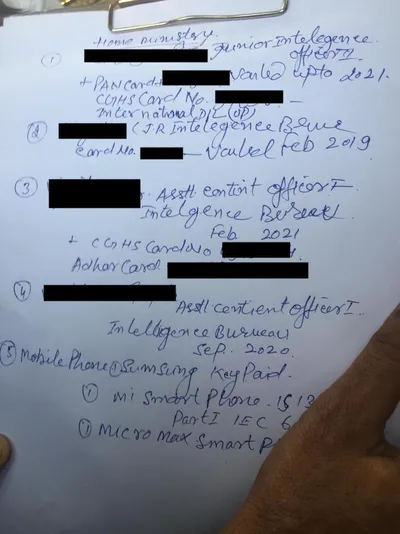 Home ministory.
① Junior Intelegence
officer II
+ PAN Card # Vauled upto 2021.
CGHS Card No. —
International D/L (UP)
② (J.R Intelegence Berue
Card No. — Vauled Feb 2019
③ . Asstt content officer I
Intelgence Bureau
Feb 2021
+ CGHS Card No
Adhar Card
④ Asstt centient officer I.
Intelligence Burueau
Sep. 2020.
⑤ Mobile Phone ① Sumsung Key Paid.
① Mi Smart Phone. IS 13
Part I IEC 6
① Micro Max Smart P